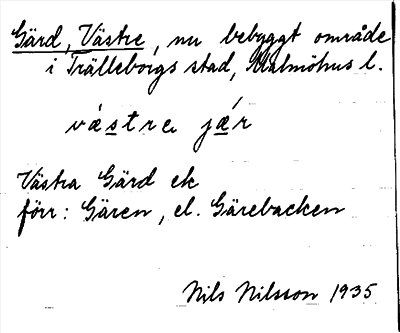 Gärd, Västre, nu bebyggt område
i Trälleborgs stad, Malmöhus l.
västre jær
Västra Gärd ek
förr: Gären, el. Gärebacken
Nils Nilsson 1935